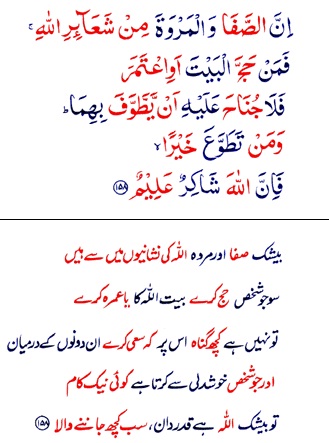 اِنَّ الصَّفَا وَالْمَرْوَةَ مِنْ شَعَآئِرِ اللّٰهِ ۚ
فَمَنْ حَجَّ الْبَيْتَ اَوِاعْتَمَرَ
فَلَا جُنَاحَ عَلَيْهِ اَنْ يَّطَّوَّفَ بِهِمَا ؕ
وَمَنْ تَطَوَّعَ خَيْرًا ۙ
فَاِنَّ اللّٰهَ شَاكِرٌ عَلِيْمٌ ﴿۱۵۸﴾
بیشک صفا اور مروہ اللہ کی نشانیوں میں سے ہیں
سو جو شخص حج کرے بیت اللہ کا یا عمرہ کرے
تو نہیں ہے کچھ گناہ اس پر کہ سعی کرے ان دونوں کے درمیان
اور جو شخص خوشدلی سے کرتا ہے کوئی نیک کام
تو بیشک اللہ ہے قدر دان، سب کچھ جاننے والا ﴿۱۵۸﴾